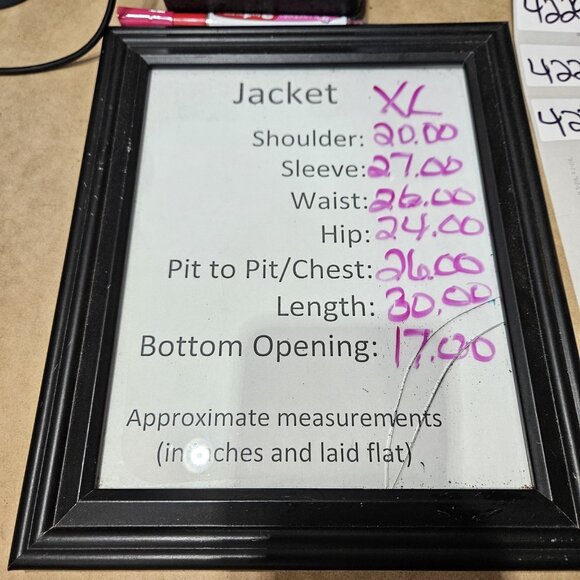 Jacket XL
Shoulder: 20.00
Sleeve: 27.00
Waist: 26.00
Hip: 24.00
Pit to Pit/Chest: 26.00
Length: 30.00
Bottom Opening: 17.00
Approximate measurements
(in inches and laid flat)
422